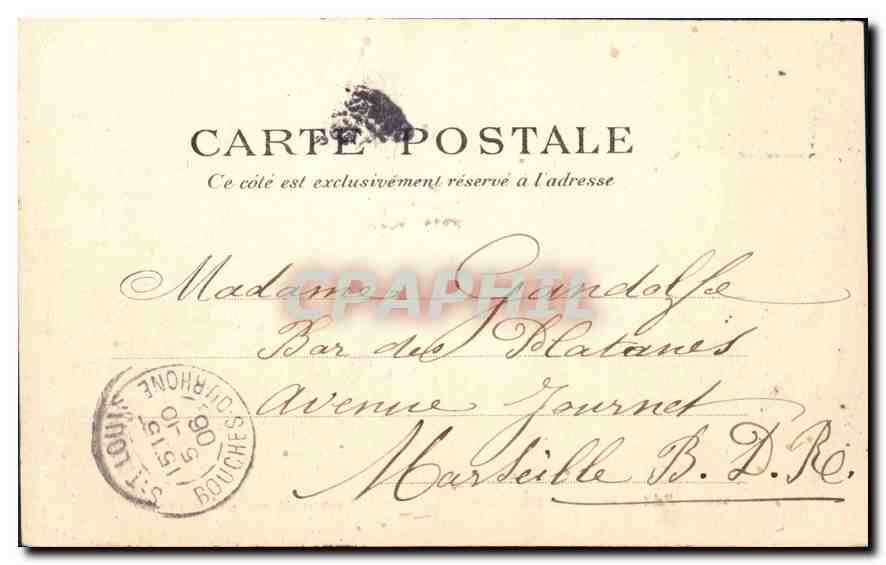 CARTE POSTALE
Ce côté est exclusivement réservé à l'adresse
CPAPHIL
Madame Gandolfe
Bar des Platanes
Avenue Journet
Marseille B. D. R.
ST LOUIS
BOUCHES-DU-RHONE
15 15
5 -10
06